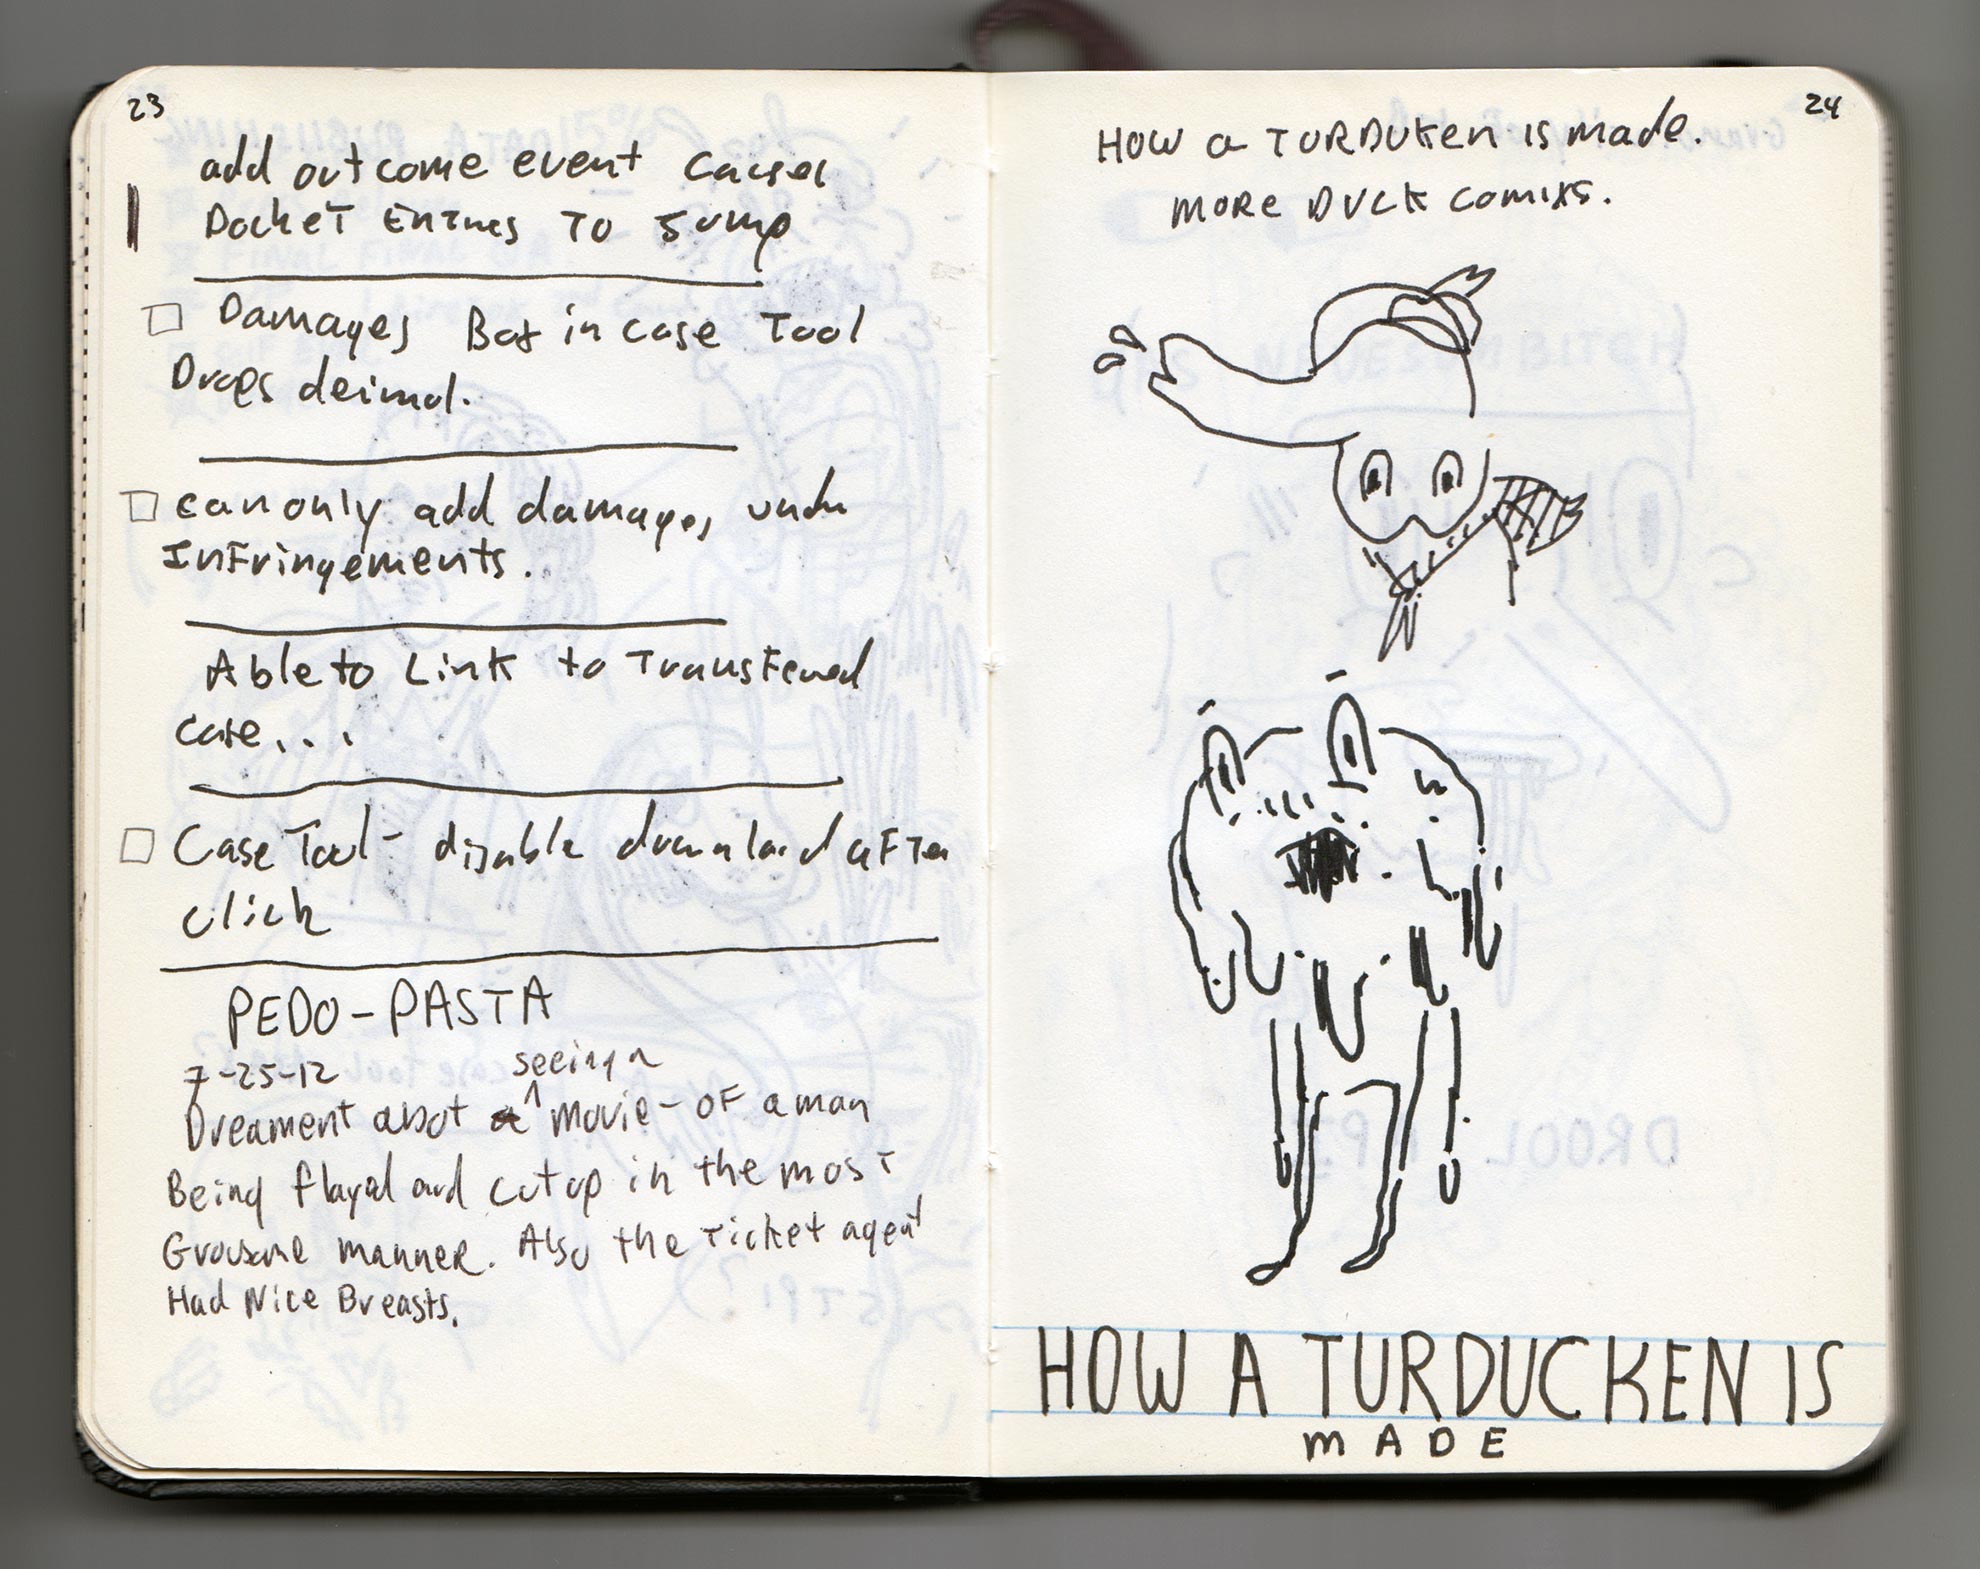 23
add outcome event causes
Docket Entries to Jump
Damages Box in case Tool
Drops deimal.
can only add damages under
Infringements.
Able to Link to Transfered
case...
Case Tool - disable download after
click
PEDO-PASTA
7-25-12
seeing a
Dreament abot movie - of a man
Being flayed and cut up in the most
Grousome manner. Also the ticket agent
Had Nice Breasts.
24
How a TURDUKen is made.
more DUCK comixs.
HOW A TURDUCKEN IS
MADE